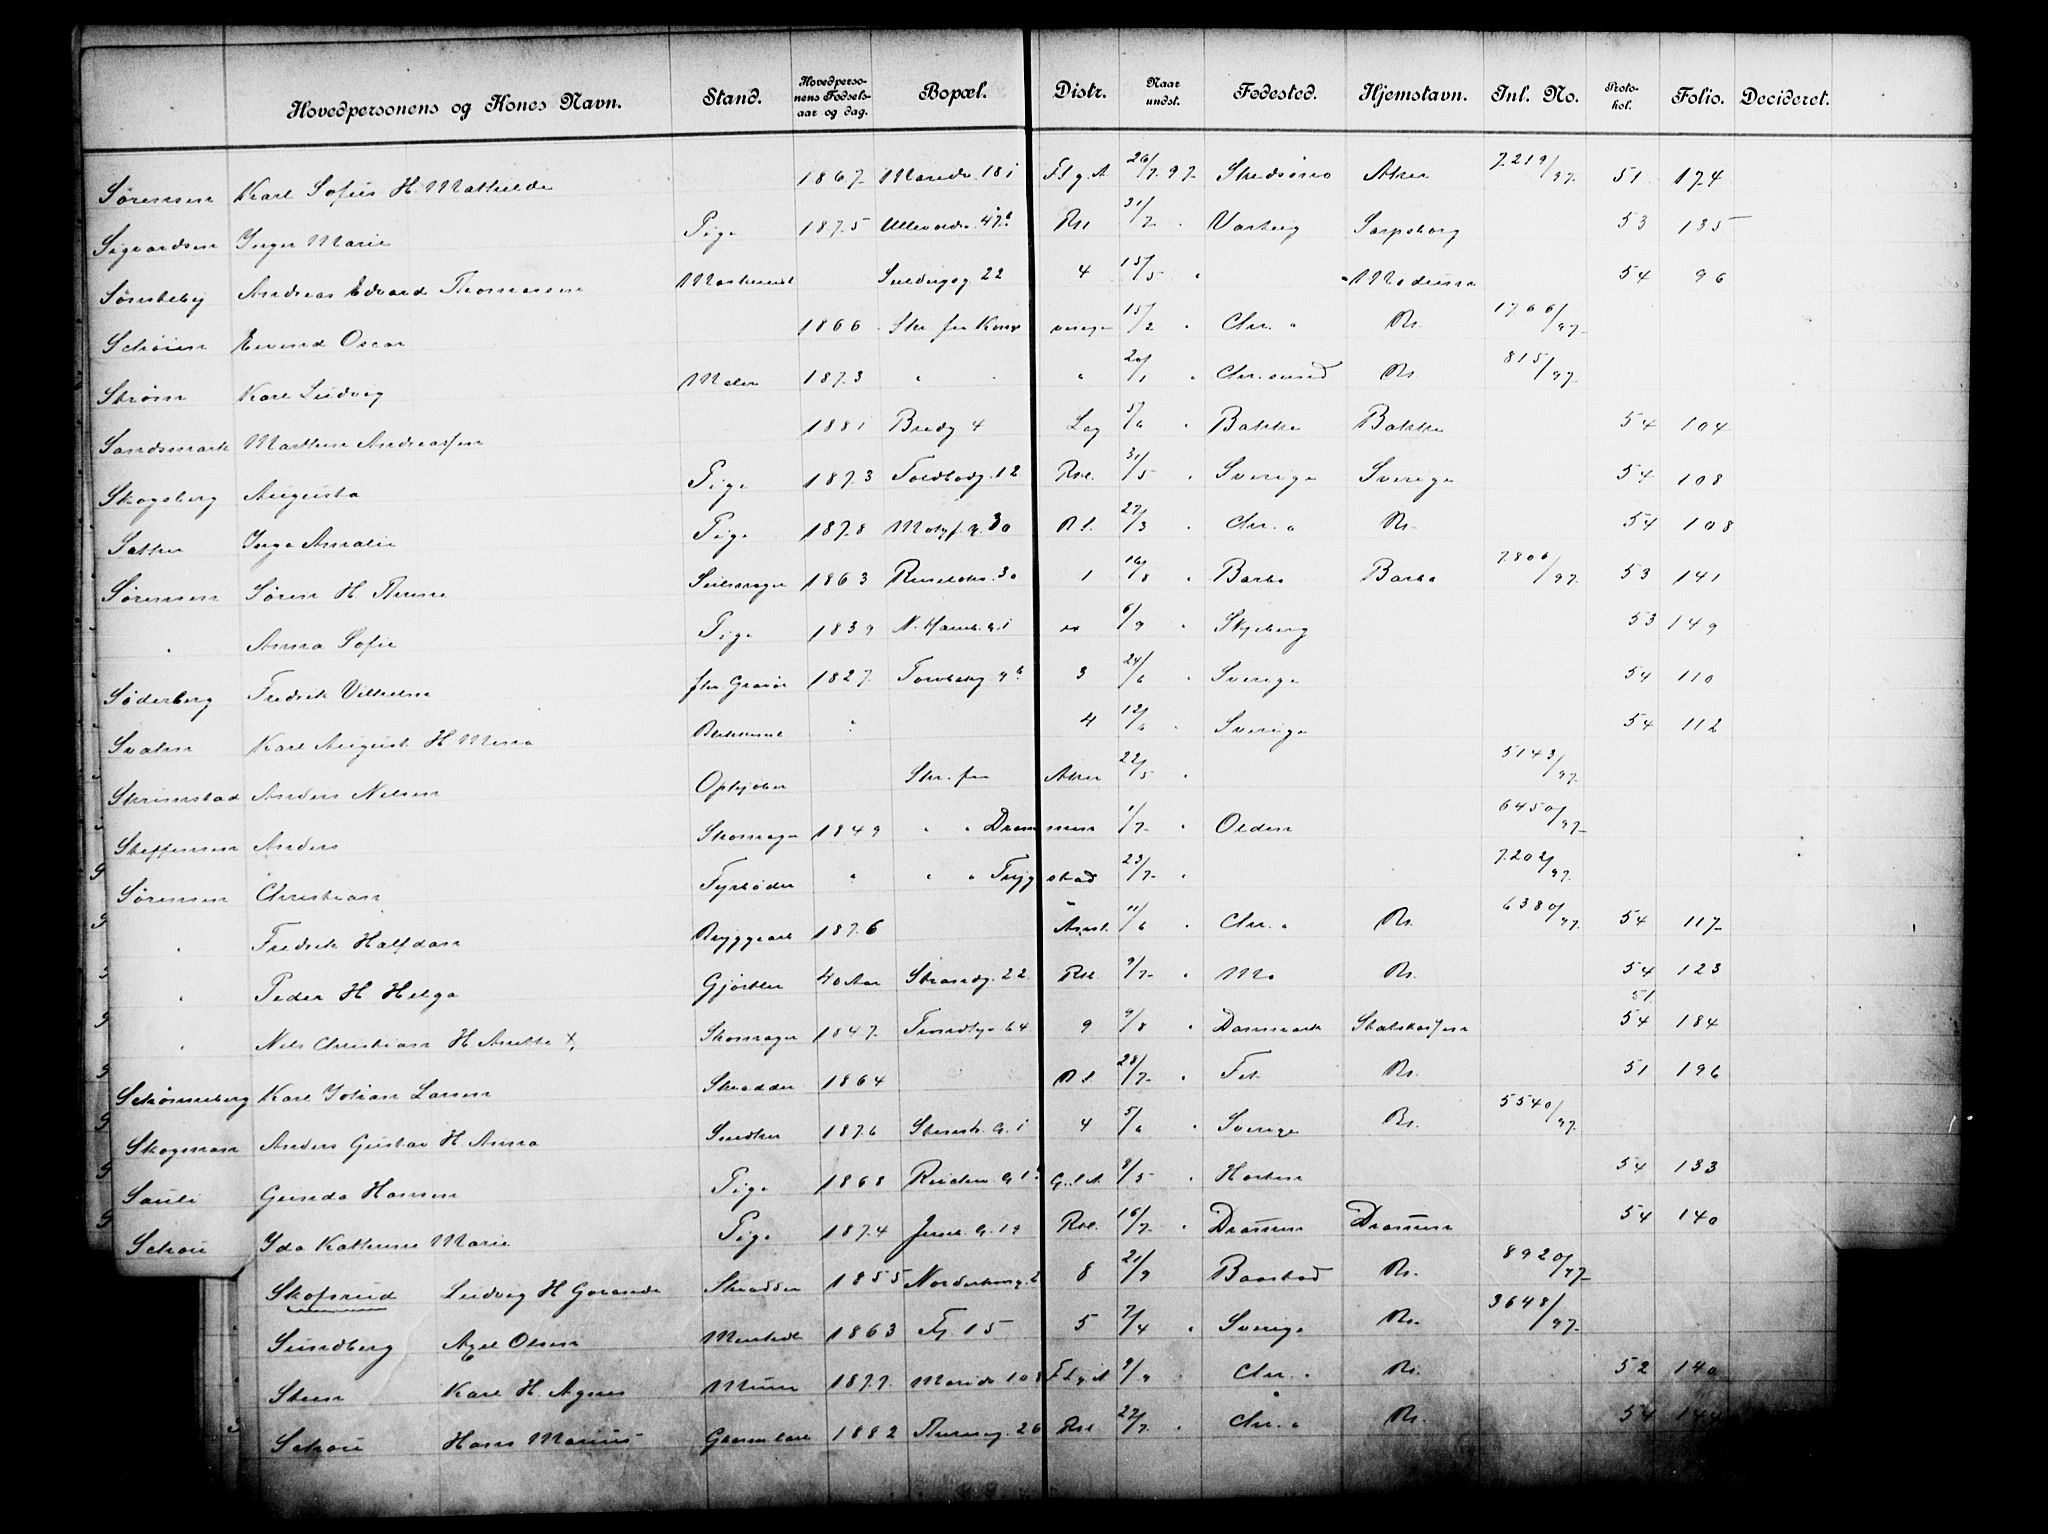 Hovedpersonens og Kones Navn. Stand. Hovedpersonens Fødselsaar og dag. Bopæl. Distr. Naar undst. Fødested. Hjemstavn. Inl. No. Protokol. Folio. Decideret.
Sørensen Karl Sofus H. Mathilde 1867 Maridv. 181 Flg A 26/7 97 Skedsmo Aker 7219/97 51 174
Sigvardsen Inger Marie Pige 1875 Ullevoldsv. 47 Rst 31/7 " Varteig Sarpsborg 53 135
Sønsteby Andreas Edvard Thomasen Maskinist 22 4 15/5 " Modum 54 96
Schøien Eivind Oscar 1866 Skr. fra 15/2 " Chr. a Rs. 1766/97
Strøm Karl Ludvig Maler 1873 " " " 20/1 " Chr.sund Rs 815/97
Sandsmark Marthin Andreassen 1881 Bredg 4 Log 5/6 Bakke Bakke 54 104
Skogsberg Augusta Pige 1873 Toldbodg. 12 Rst. 31/5 " Sverige Sverige 54 108
Sether Inga Amalie Pige 1878 30 Rs. 27/3 " Chr. a Rs. 54 108
Sørensen Søren H. Seilmager 1863 Ruseløkv. 30 1 16/8 " Barbo Barbo 7806/97 53 141
" Anna Sofie Pige 1839 6/9 " Skjeberg 53 149
Søderberg Fredrik Vilhelm 1827 Torvbakg 9b 3 24/6 " Sverige 54 110
Svahn Karl August H. Mina Blikkensl : 4 12/6 " Sverige 54 112
Skrimstad Anders Nilsen Opkjøber Skr. fra Aker 22/5 " 5143/97
Steffensen Anders Skomager 1849 " " Drammen 1/7 " Olden 6450/97
Sørensen Christian Fyrbøder " " " Trygstad 23/7 " 7202/97
" Fredrik Halfdan Bryggearb 1876 Anst. 11/6 " Chr. a Rs. 6380/97 54 117
" Peder H. Helga Gjørtler 40 Aar Strandg. 22 Rst. 9/7 " Mo Rs. 54 123
" Nils Christian H. Anette x, Skomager 1847 64 9 9/8 " Danmark Statskassen 51 54 184
Schønneberg Karl Johan Larsen Skrædder 1864 Rs. 28/7 " Fet Rs. 51 196
Skogman Anders Gustav H. Anna Snedker 1876 Stenstr. G. 1 4 5/6 " Sverige Rs. 5540/97
Sauli Gunda Hansen Pige 1868 G. l A 8/5 " Horten 54 133
Schou Ida Kathrine Marie Pige 1874 19 Rst. 16/7 " Drammen Drammen 54 140
Skofsrud Ludvig H. Skrædder 1855 8 21/9 Baastad Rs. 8920/97
Sundberg Axel Olsen 1863 15 5 7/4 " Sverige Rs. 3648/97
Steen Karl H. Agnes Murer 1877 Maridv 108 Flg A 9/9 Chr. a Rs. 52 140
Schou Hans Marius 1882 26 Rst 27/7 " Chr. a Rs. 54 144